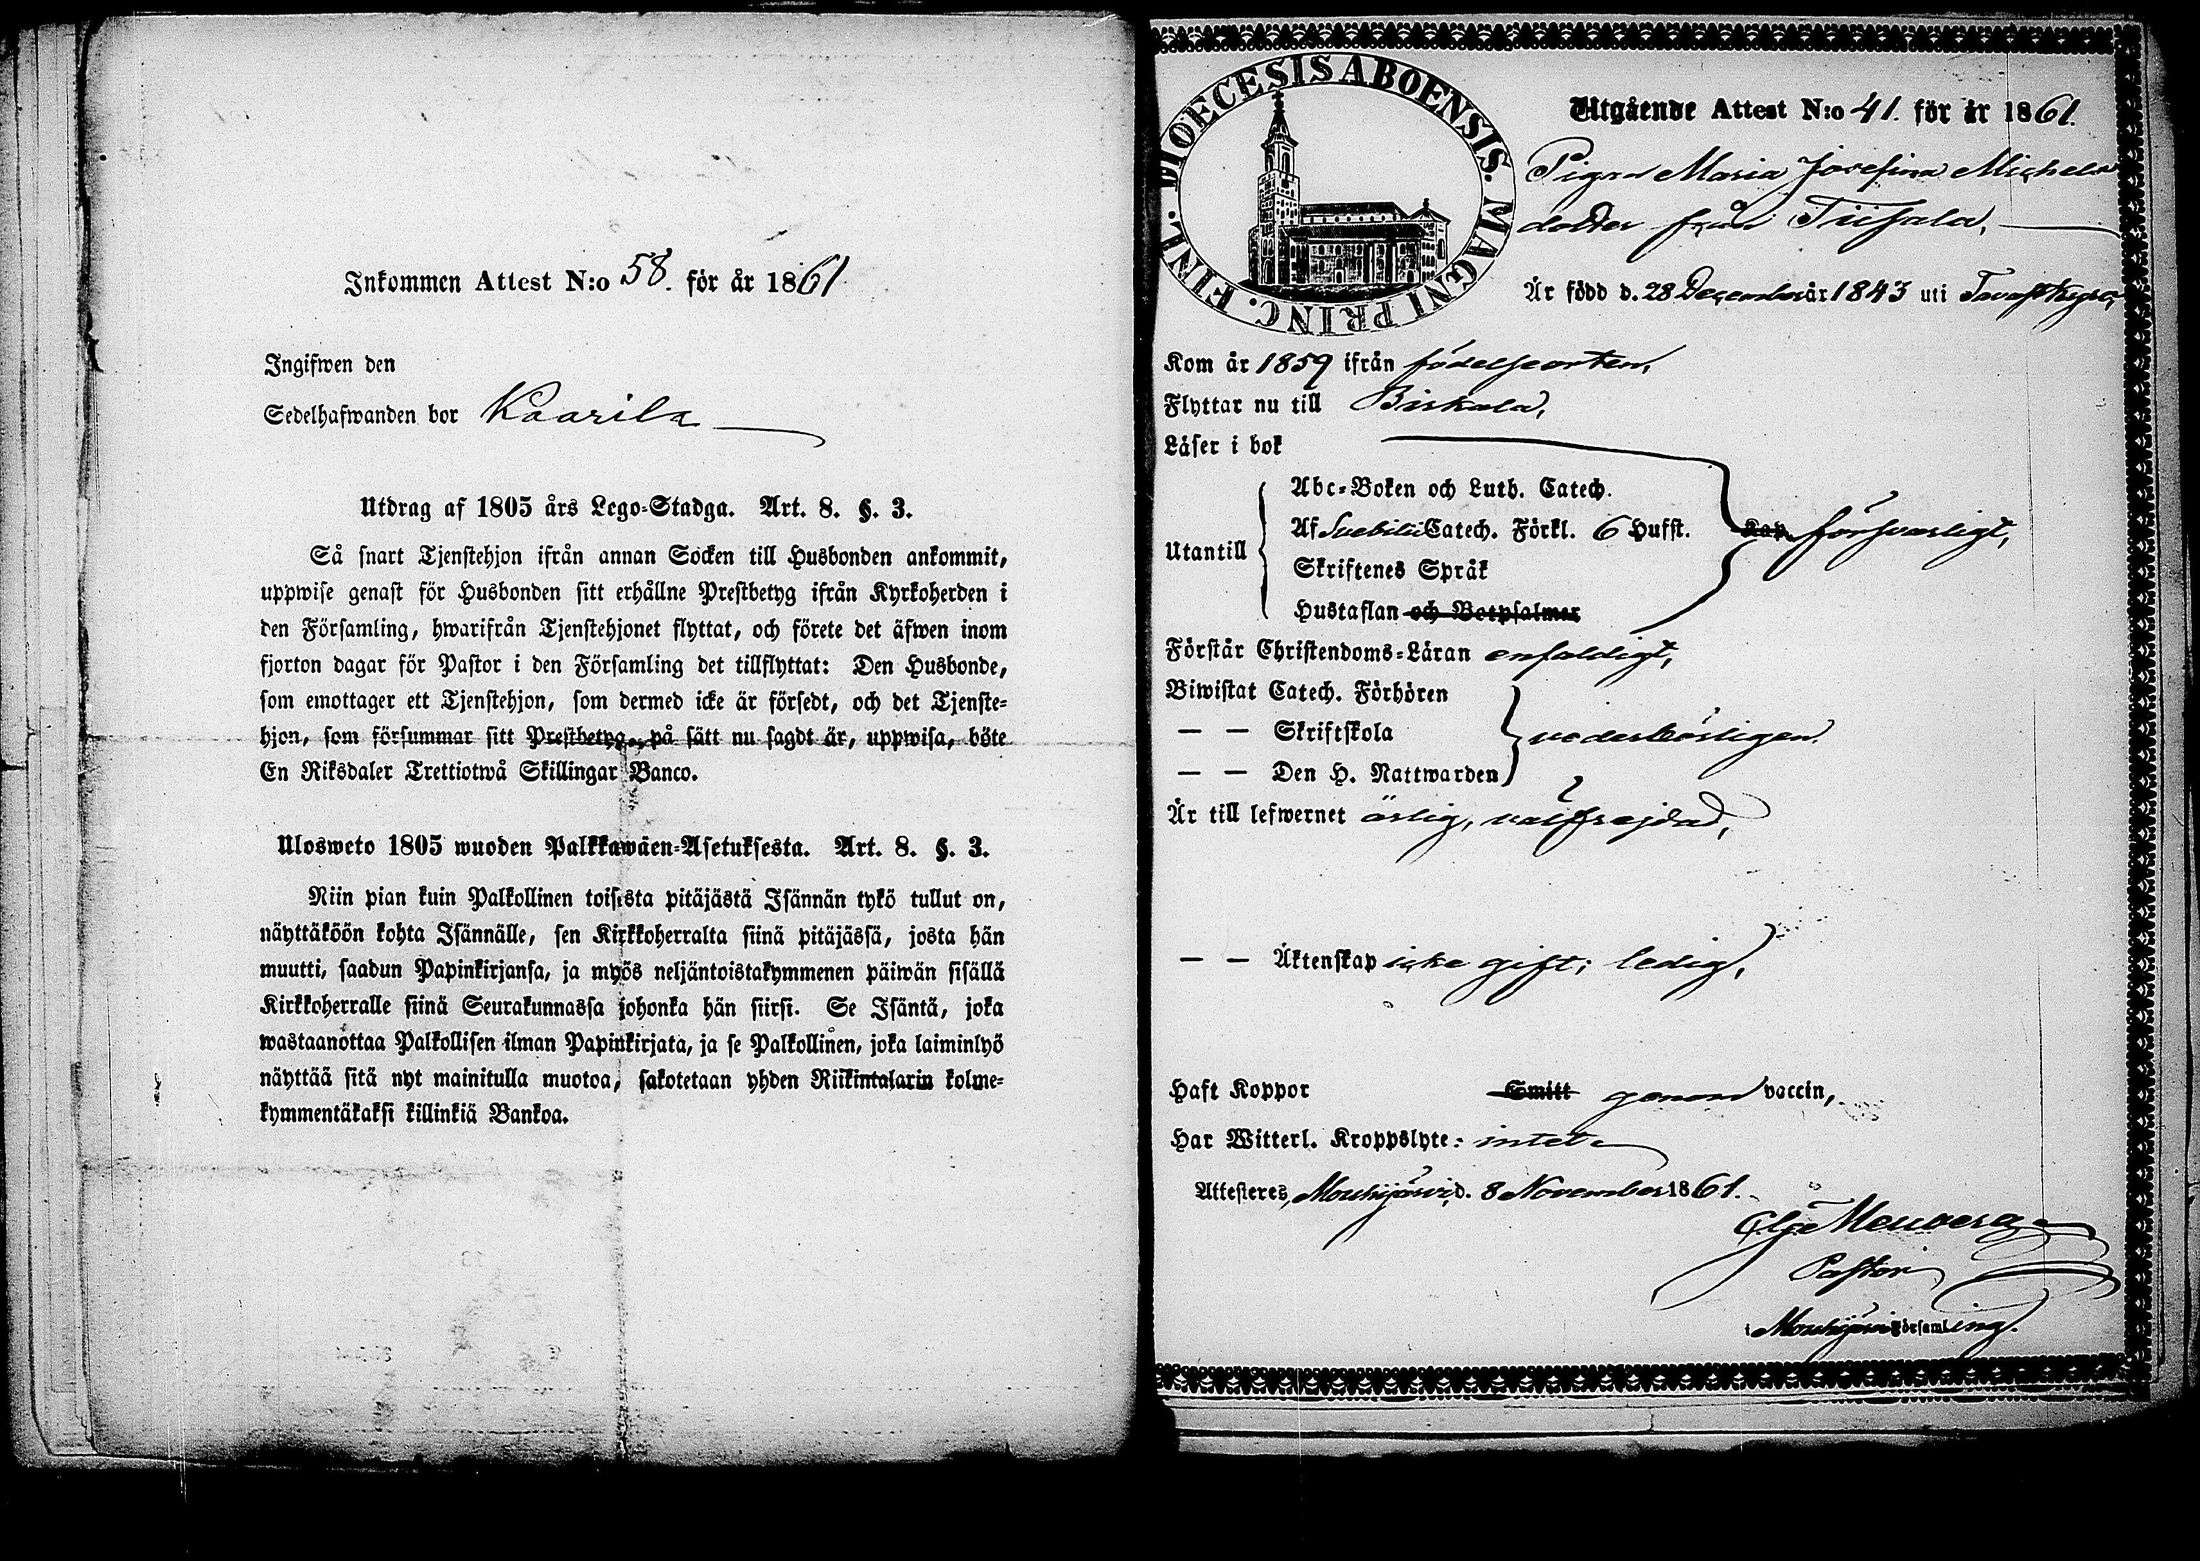 Inkommen Attest N:o 58. för år 1861
Ingifwen den
Sedelhafwanden bor Kaarila
Utdrag af 1805 års Lego-Stadga. Art. 8. §. 3.
Så snart Tjenstehjon ifrån annan Socken till Husbonden ankommit,
uppwise genast för Husbonden sitt erhållne Prestbetyg ifrån Kyrkoherden i
den Församling, hwarifrån Tjenstehjonet flyttat, och förete det äfwen inom
fjorton dagar för Pastor i den Församling det tillflyttat: Den Husbonde,
som emottager ett Tjenstehjon, som dermed icke är försedt, och det Tjenste-
hjon, som försummar sitt Prestbetyg, på sätt nu sagdt är, uppwisa, böte
En Riksdaler Trettiotwå Skillingar Banco.
Ulosweto 1805 wuoden Palkkawäen-Asetuksesta. Art. 8. §. 3.
Niin pian kuin Palkollinen toisesta pitäjästä Isännän tykö tullut on,
näyttäköön kohta Isännälle, sen Kirkkoherralta siinä pitäjässä, josta hän
muutti, saadun Papinkirjansa, ja myös neljäntoistakymmenen päiwän sisällä
Kirkkoherralle siinä Seurakunnassa johonka hän siirsi. Se Isäntä, joka
wastaanottaa Palkollisen ilman Papinkirjata, ja se Palkollinen, joka laiminlyö
näyttää sitä nyt mainitulla muotoa, sakotetaan yhden Riikintalarin kolme-
kymmentäkaksi killinkiä Bankoa.
DIOECESIS ABOENSIS. MAGNI PRINC. FINL.
Utgående Attest N:o 41. för år 1861.
Pigan Maria Josefina Michels
dotter från Tiisala,
Är född d. 28 December år 1843 uti Tavastkyro,
Kom år 1859 ifrån födelseorten,
Flyttar nu till Birkala,
Läser i bok
Utantill
Abc-Boken och Luth. Catech.
Af Svebilii Catech. Förkl. 6 Hufst. Kap. försvarligt,
Skriftenes Språk
Hustaflan och Botpsalmer
Förstår Christendoms-Läran enfaldigt,
Biwistat Catech. Förhören
— — Skriftskola vederbörligen.
— — Den H. Nattwarden
Är till lefwernet ärlig, välfrejdad,
— — Äktenskap icke gift; ledig,
Haft Koppor Smitt genom vaccin,
Har Witterl. Kroppslyte: intet
Attesteres, Mouhijärvi d. 8 November 1861.
Pastor
i Mouhijärvi Församling.